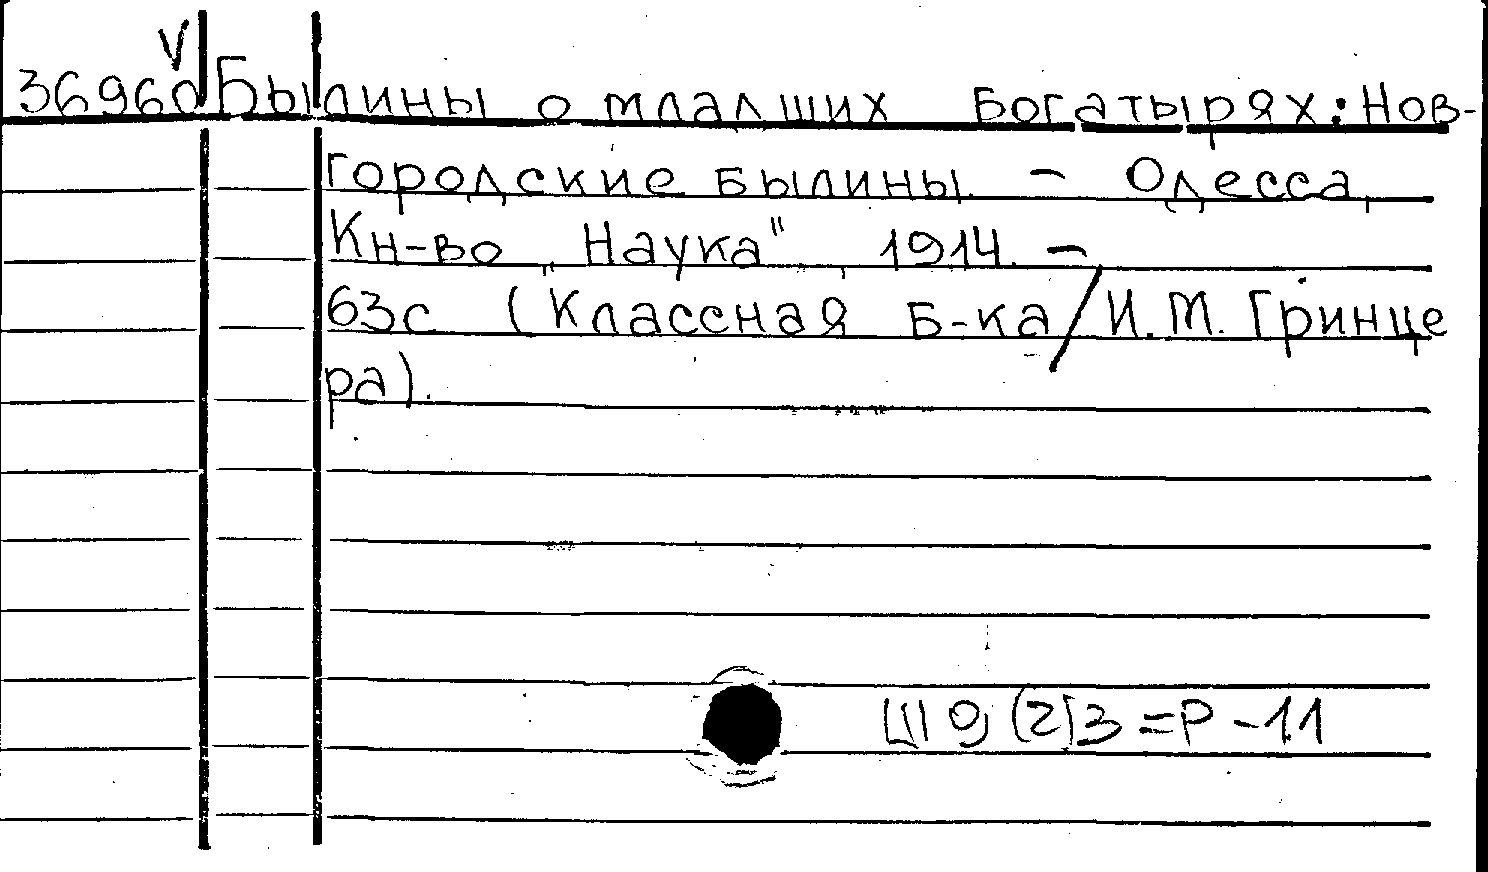 V
36960 Былины о младших богатырях: Нов-
городские былины. – Одесса,
Кн-во „Наука", 1914. –
63с (Классная б-ка/И.М. Гринце
ра).
Ш9(2)3=Р-11